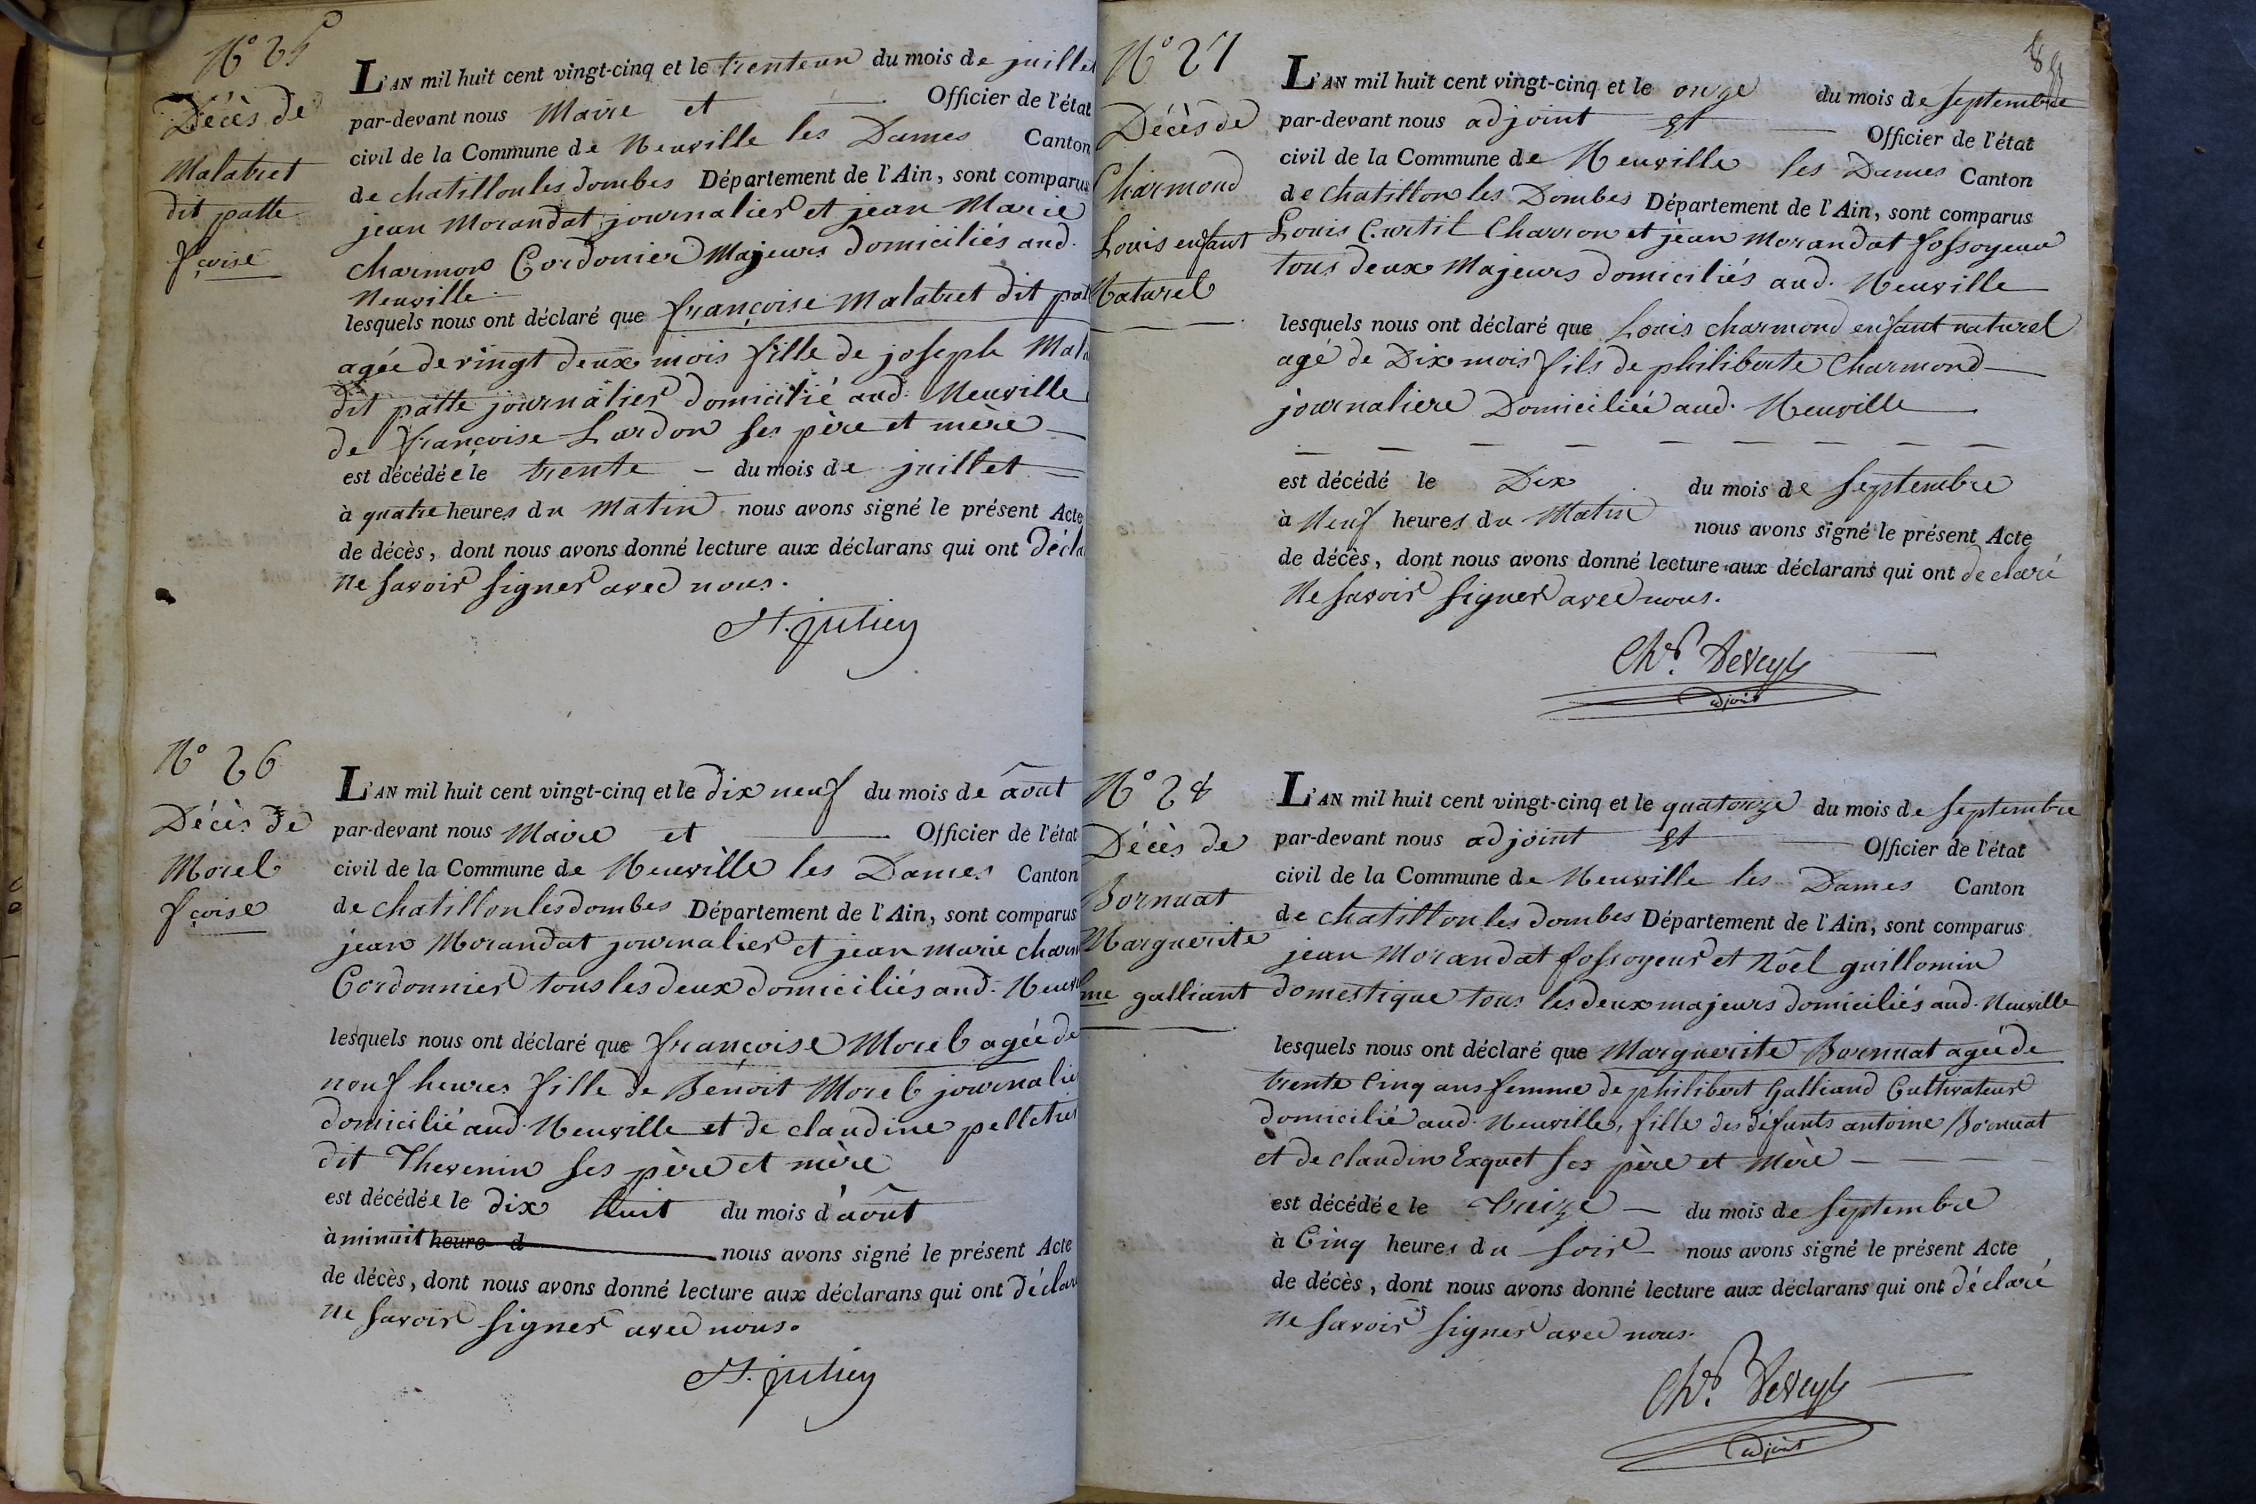 N° 25
Décès de
Malatret
dit patte
fçoise
L'AN mil huit cent vingt-cinq et le trenteun du mois de juillet
par-devant nous Maire et Officier de l'état
civil de la Commune de Neuville les Dames Canton
de chatillon les dombes Département de l'Ain, sont comparus
jean Morandat journalier et jean Marie
charmon Cordonier Majeurs domiciliés aud.
Neuville
lesquels nous ont déclaré que françoise Malatret dit pat
agée de vingt deux mois fille de joseph Mala
dit patte journalier domicilié aud. Neuville
de françoise Lardon ses père et mère
est décédée le trente du mois de juillet
à quatre heures du Matin nous avons signé le présent Acte
de décès, dont nous avons donné lecture aux déclarans qui ont Décla
Ne savoir signer avec nous.
St. julien
N° 26
Décès de
Morel
fçoise
L'AN mil huit cent vingt-cinq et le dix neuf du mois de août
par-devant nous Maire et Officier de l'état
civil de la Commune de Neuville les Dames Canton
de chatillon les dombes Département de l'Ain, sont comparus
jean Morandat journalier et jean marie charm
Cordonnier tous les deux domiciliés aud. Neuv
lesquels nous ont déclaré que françoise Morel agée de
neuf heures fille de Benoit Morel journalier
domicilié aud. Neuville et de claudine pelletier
dit Thevenin ses père et mère
est décédée le dix huit du mois d'août
à minuit heure d nous avons signé le présent Acte
de décès, dont nous avons donné lecture aux déclarans qui ont déclaré
ne savoir signer avec nous.
St. julien
N° 27
Décès de
Charmond
Louis enfant
Naturel
L'AN mil huit cent vingt-cinq et le onze du mois de septembre
par-devant nous adjoint et Officier de l'état
civil de la Commune de Neuville les Dames Canton
de chatillon les Dombes Département de l'Ain, sont comparus
Louis Curtil Charron et jean Morandat fossoyeur
tous deux Majeurs domiciliés aud. Neuville
lesquels nous ont déclaré que Louis charmond enfant naturel
agé de Dix mois fils de philiberte Charmond
journaliere Domiciliée aud. Neuville
est décédé le Dix du mois de septembre
à Neuf heures du Matin nous avons signé le présent Acte
de décès, dont nous avons donné lecture aux déclarans qui ont declaré
Ne savoir signer avec nous.
Chr. Deveyle
adjoint
N° 28
Décès de
Bornuat
Marguerite
me galliant
L'AN mil huit cent vingt-cinq et le quatorze du mois de septembre
par-devant nous adjoint et Officier de l'état
civil de la Commune de Neuville les Dames Canton
de chatillon les dombes Département de l'Ain, sont comparus
jean Morandat fossoyeur et Nöel guillomin
domestique tous les deux majeurs domiciliés aud. Neuville
lesquels nous ont déclaré que Marguerite Bornuat agée de
trente Cinq ans femme de philibert Galliand Cultivateur
domicilié aud. Neuville, fille des défunts antoine Bornuat
et de claudin Exquet ses père et Mère
est décédée le treize du mois de septembre
à Cinq heures du soir nous avons signé le présent Acte
de décès, dont nous avons donné lecture aux déclarans qui ont déclaré
Ne savoir signer avec nous.
Chr. Deveyle
adjoint